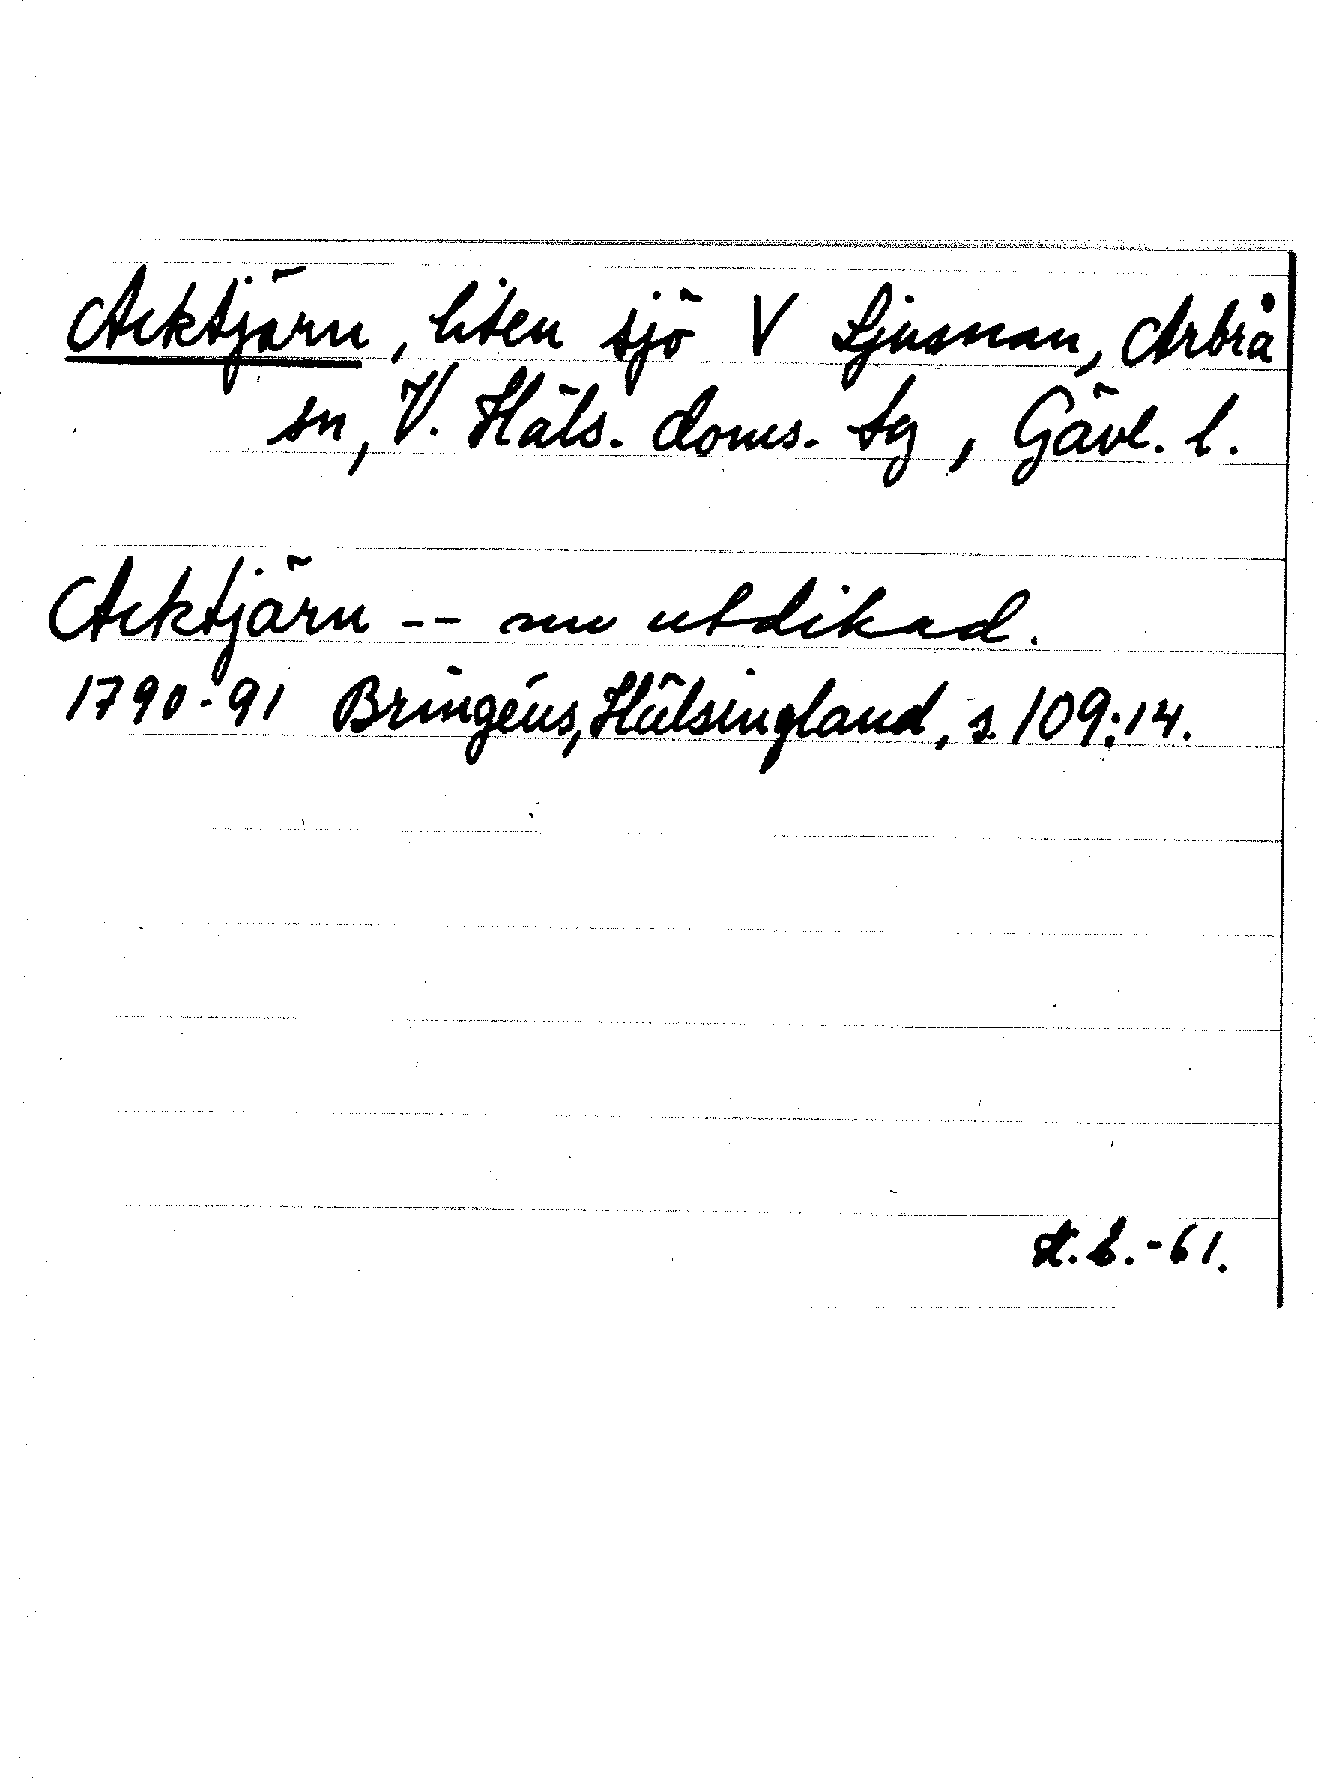 Acktjärn, liten sjö V Ljusnan, Arbrå
sn, V. Häls. doms. tg, Gävl. l.
Acktjärn -- nu utdikad.
1790-91 Bringéus, Hälsingland, s. 109:14.
-61.